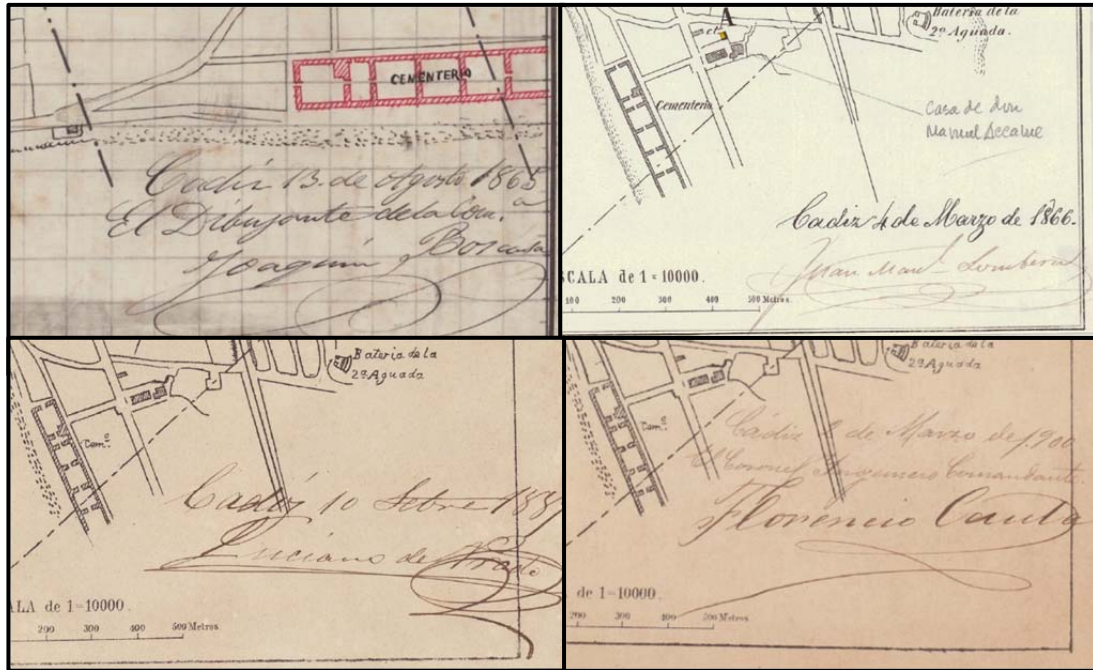 CEMENTERIO
Cadiz 13. de Agosto 1865
El Dibujante de la Com.a
Joaquin
A
Bateria de la
2ª Aguada.
Cementerio
Casa de don
Manuel
Cadiz 4 de Marzo de 1866.
Juan Manl. Lombera
SCALA de 1=10000.
100 200 300 400 500 Metros.
Bateria de la
2ª Aguada
Cem.o
Cadiz 10 Setbre
Luciano de Prado
ALA de 1=10000.
200 300 400 500 Metros
Bateria de la
2ª Aguada
Cem.o
Cádiz 2 de Marzo de 1,900
El Coronel Ingeniero Comandante.
Florencio
de 1=10000.
200 300 400 500 Metros